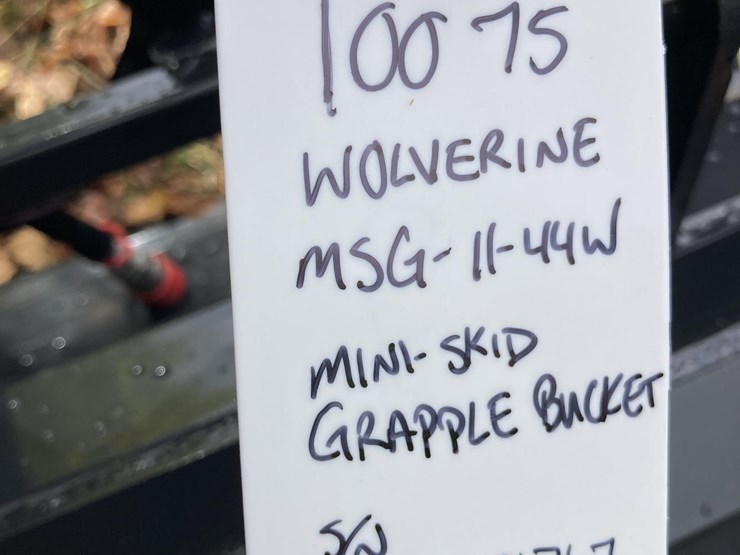 10075
WOLVERINE
MSG-11-44W
MINI-SKID
GRAPPLE BUCKET
S/N